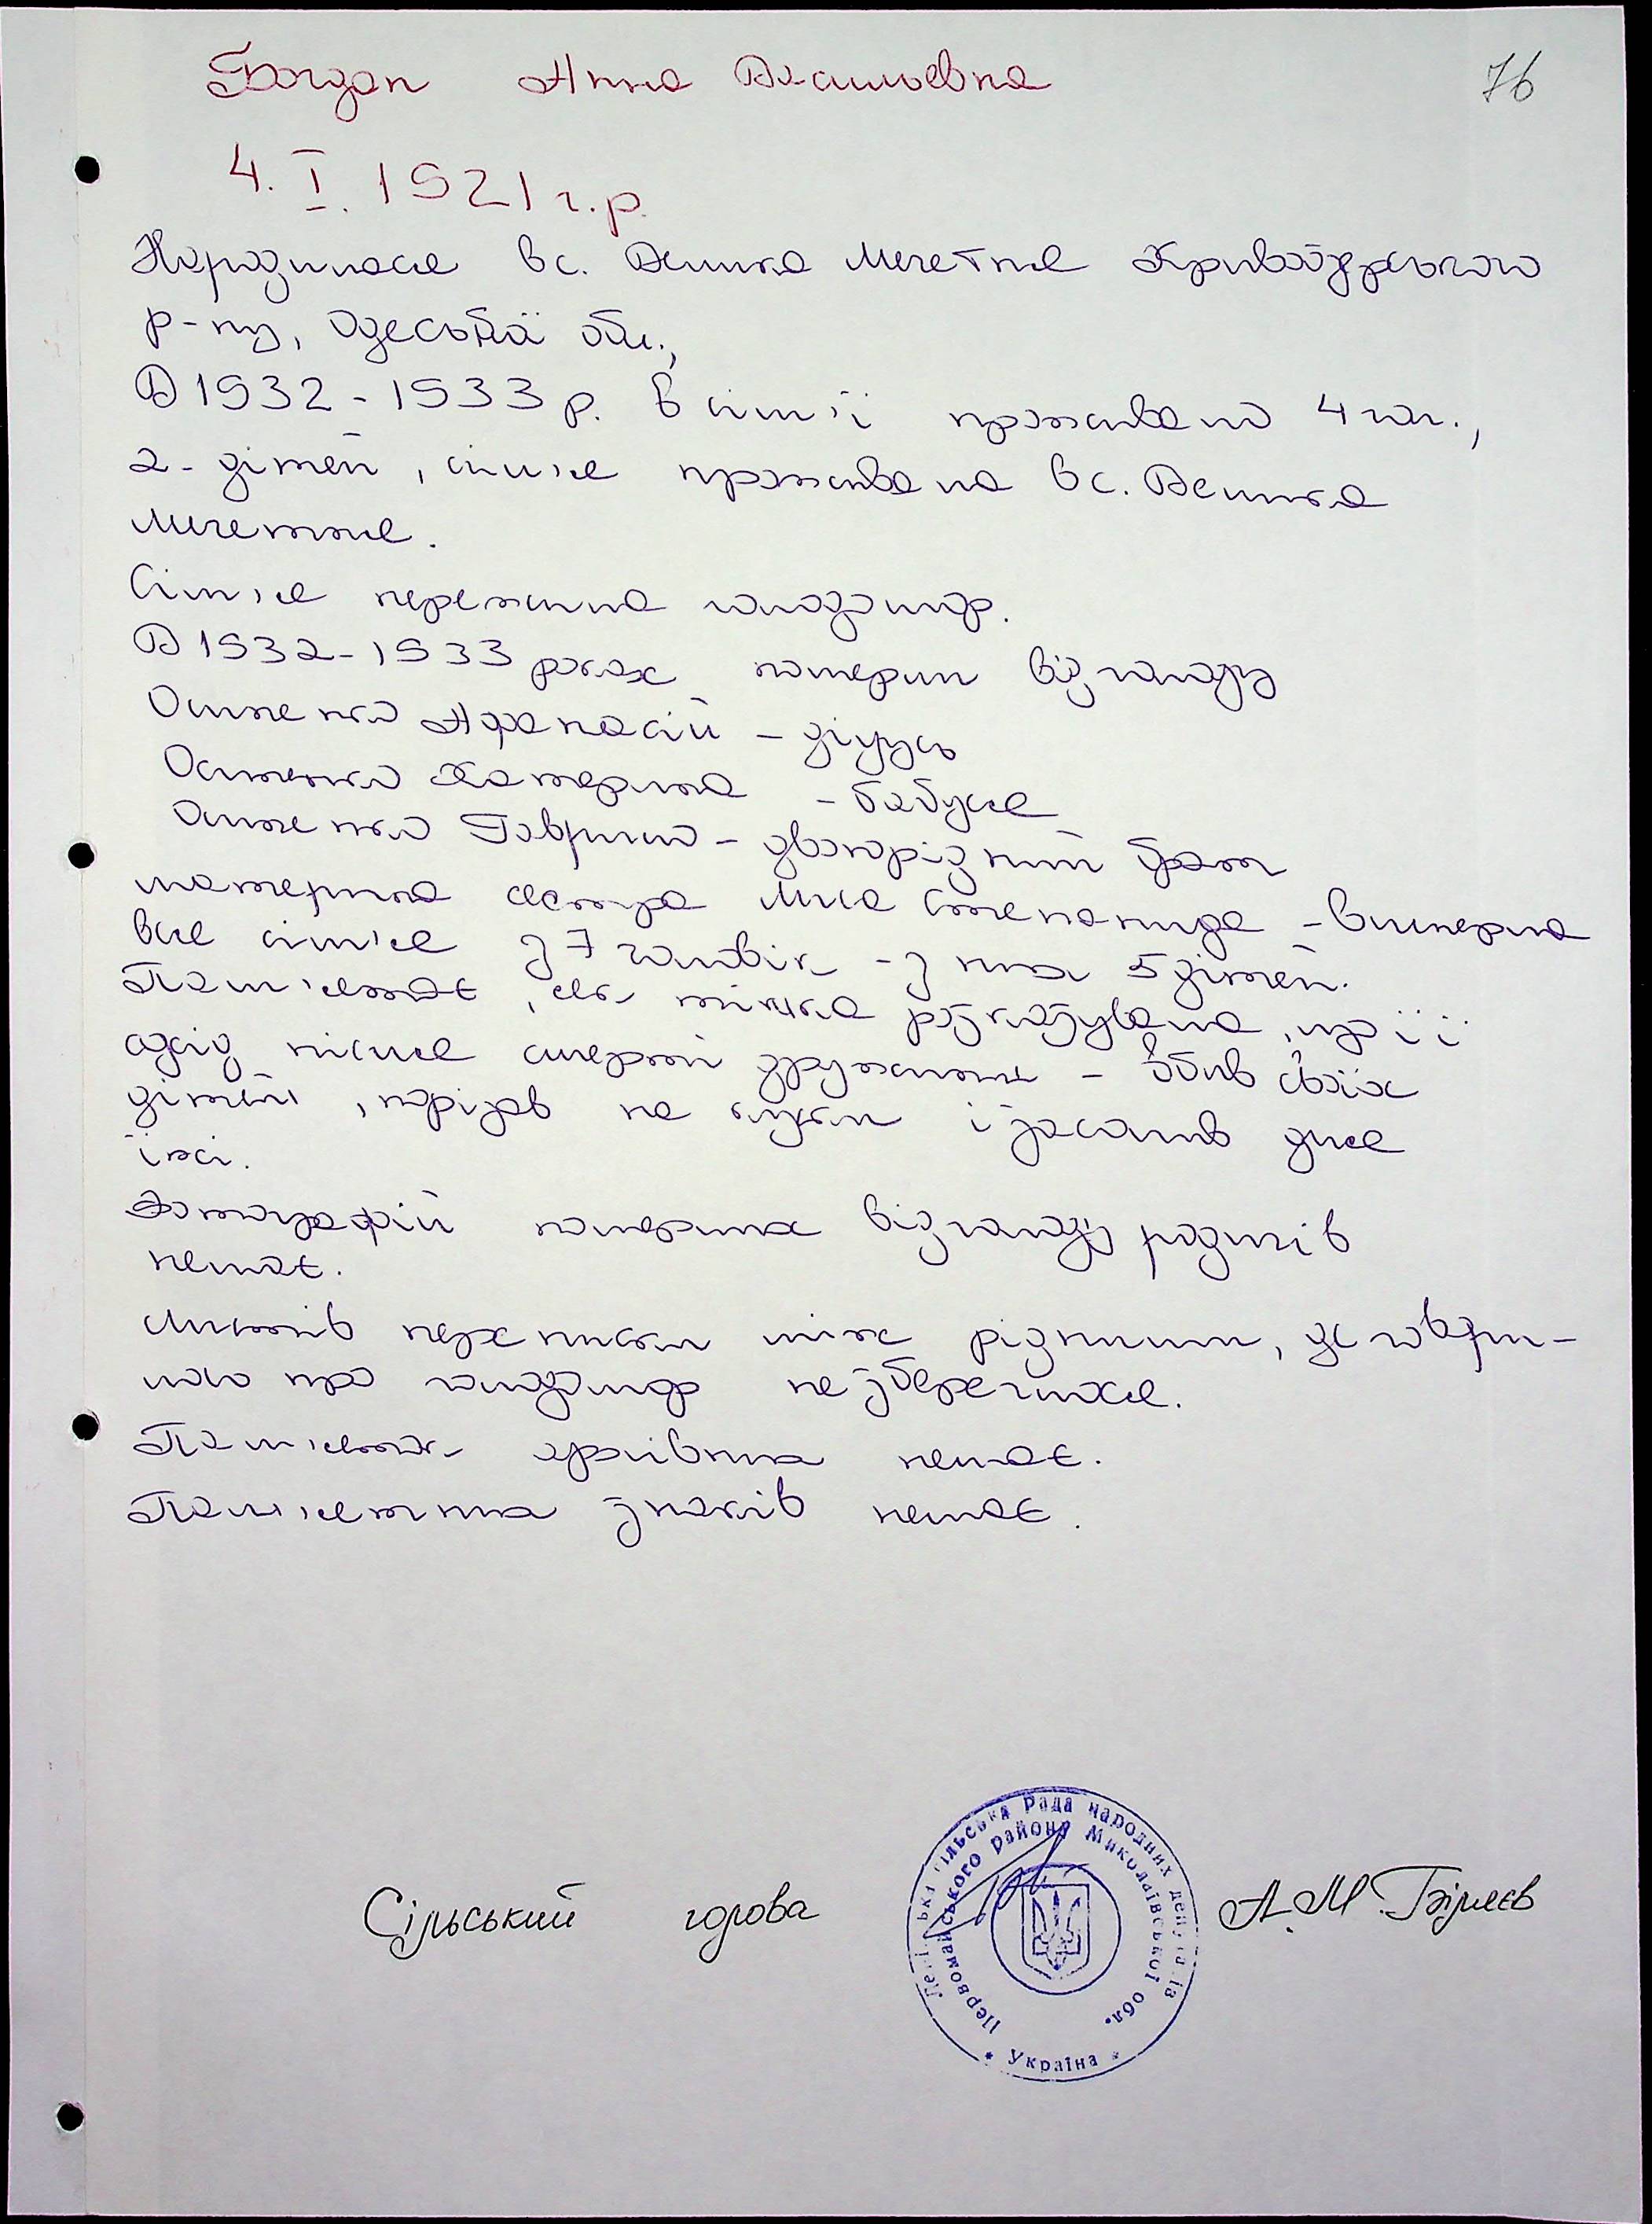 Богдан Анна Васильевна
76
4. I. 1921 г.р.
Народилася в с. Велика Мечетня Кривоозерського
р-ну, Одеської обл.,
В 1932-1933 р. в сім'ї проживало 4 чол.,
2-дітей, сім'я проживала в с. Велика
Мечетня.
Сім'я пережила голодомор.
В 1932-1933 роках померли від голоду
Осипенко Афанасій - дідусь
Осипенко Катерина - бабуся
Осипенко Гаврило - двоюрідний брат
материна сестра Степанида - вимерла
вся сім'я з 7 чоловік - з них 5 дітей.
Пам'ятає, як тітка розказувала, що її
сусід після смерті дружини - вбив своїх
дітей, порізав на куски і засолив для
їжі.
Фотографій померлих від голоду родичів
немає.
Листів переписки між рідними, де говори-
лось про голодомор не збереглося.
Пам'яток архівних немає.
Пам'ятних знаків немає.
Сільський голова
А.М. Біляєв
сільська Рада народних депутатів
Первомайського району Миколаївської обл.
* Україна *